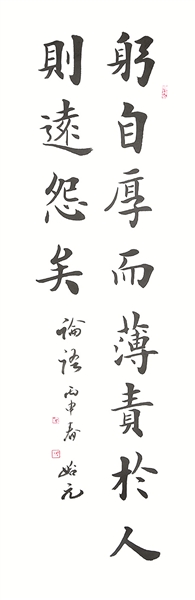 躬自厚而薄責於人
則遠怨矣
論語 丙申春 始元